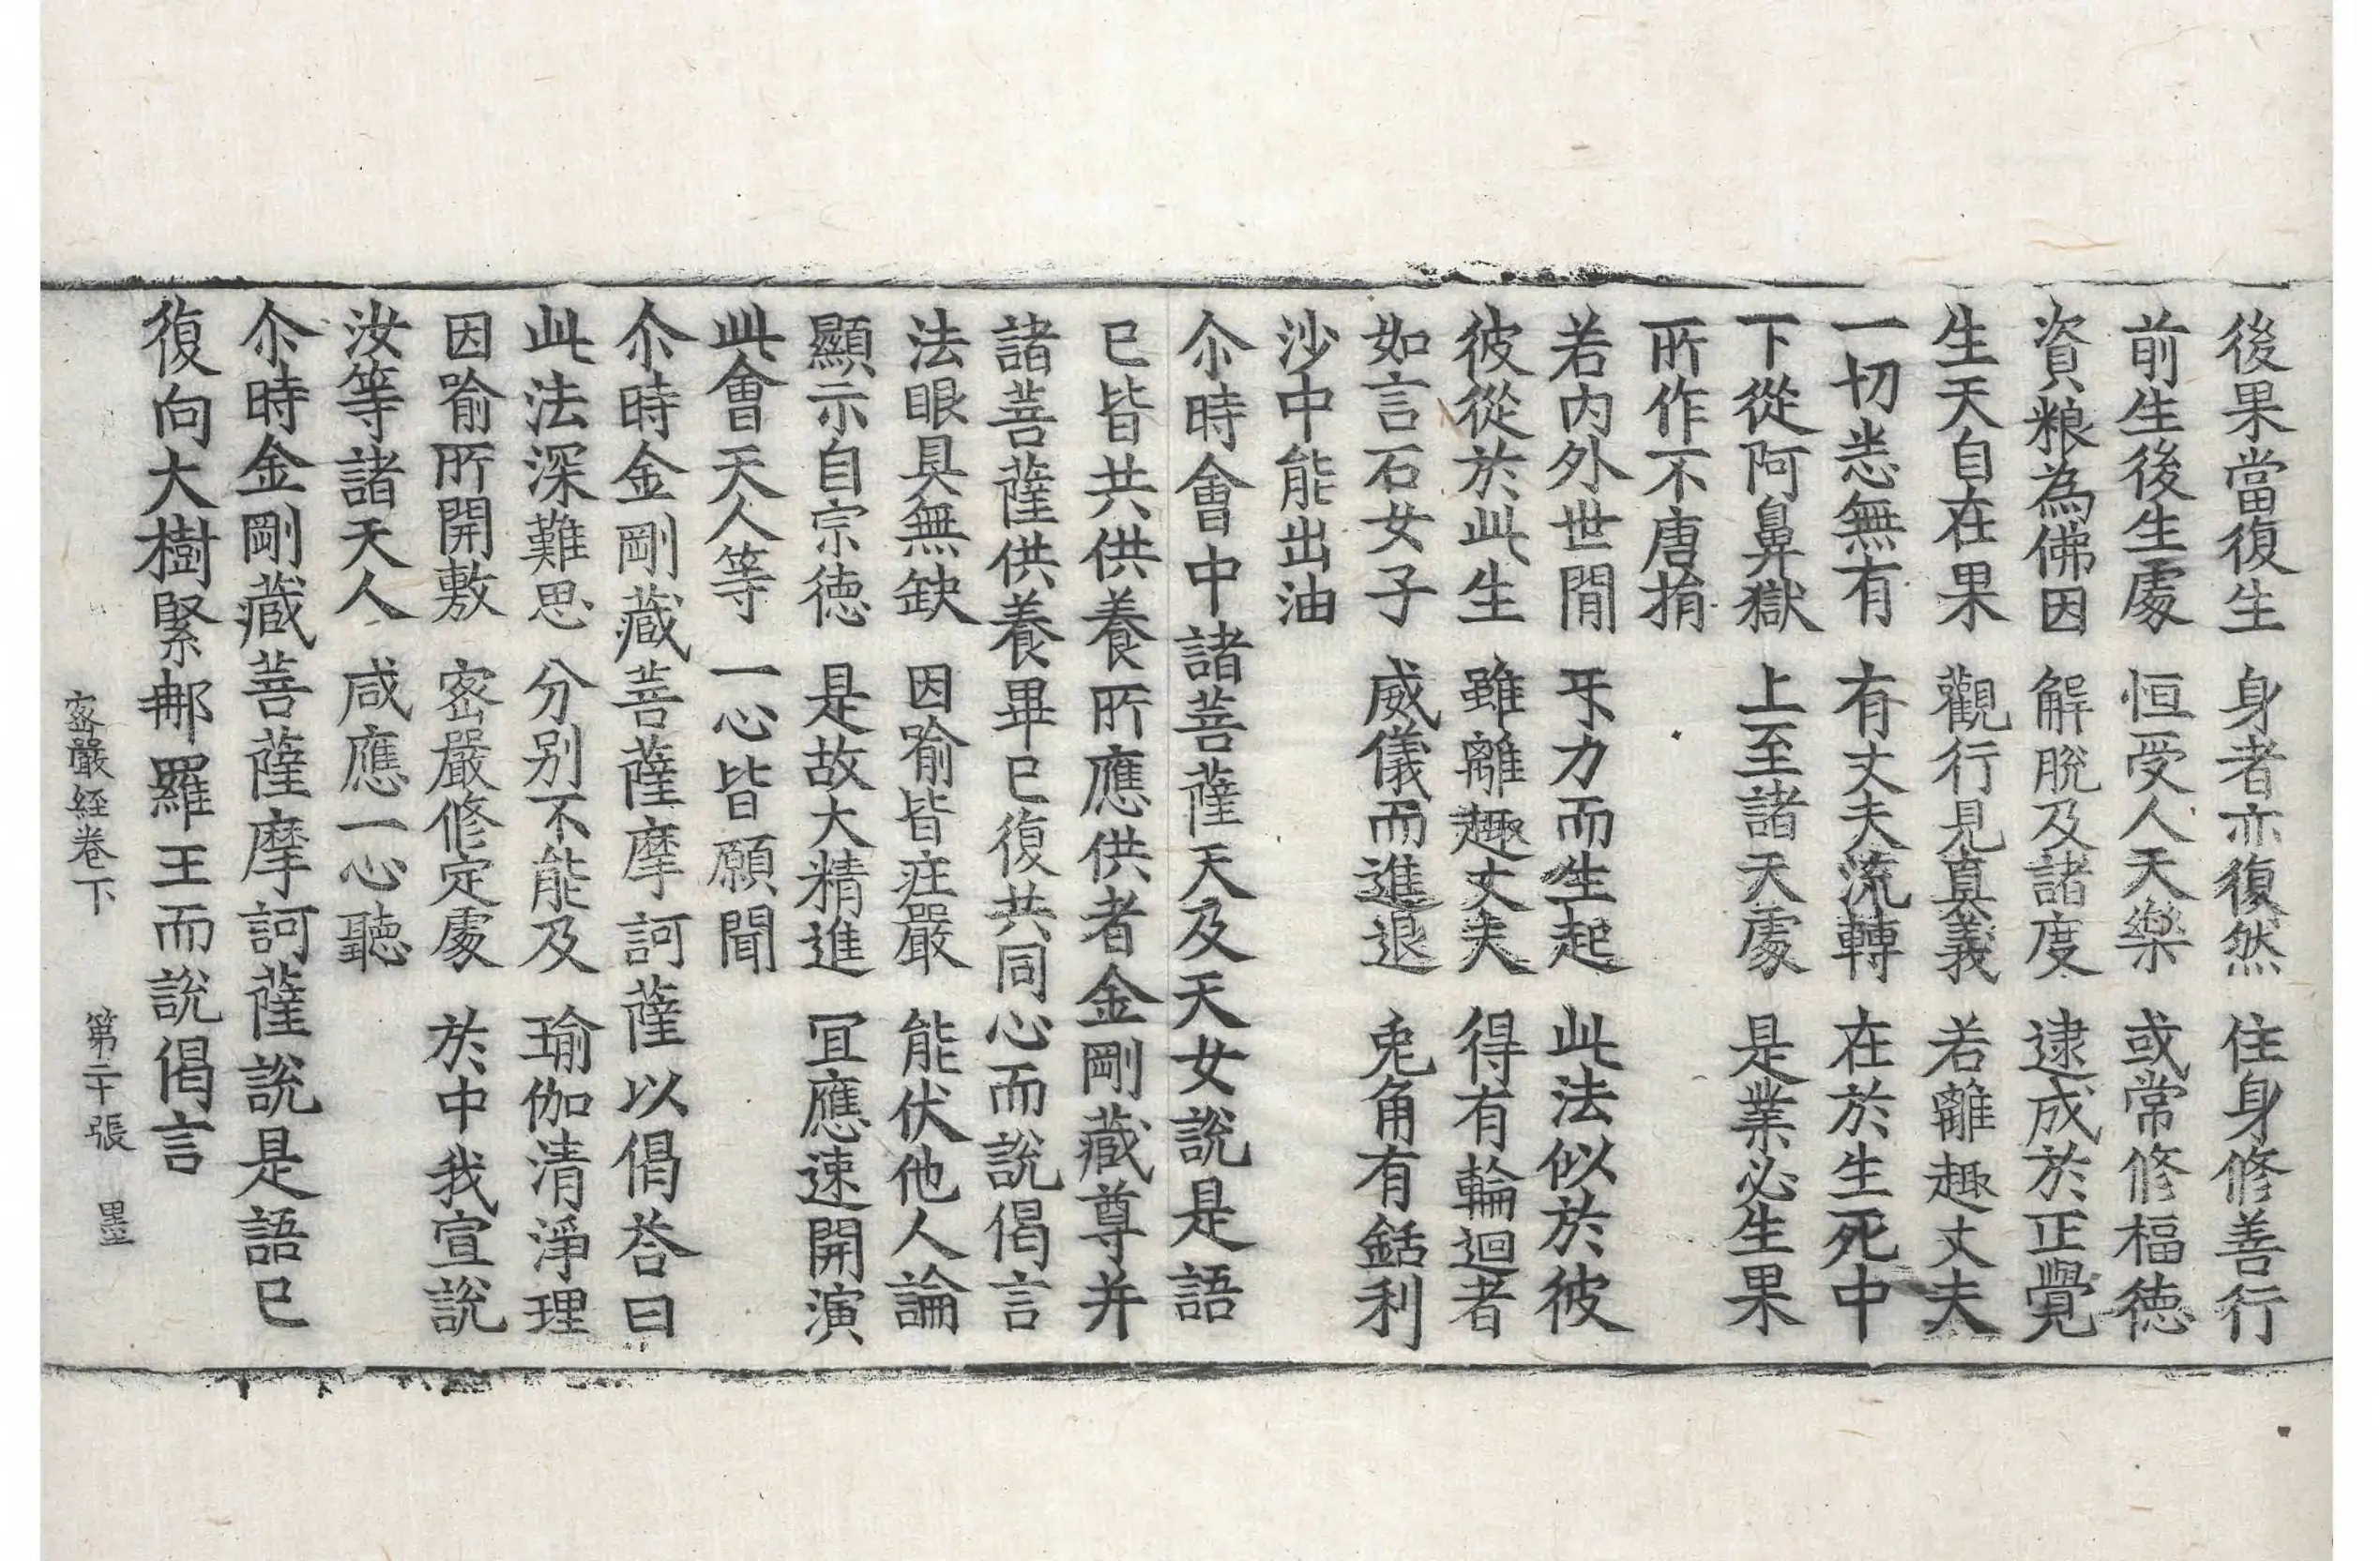 後果當復生　身者亦復然　住身修善行
前生後生處　恒受人天樂　或常修福徳
資粮為佛因　解脫及諸度　逮成於正覺
生天自在果　觀行見真義　若離趣丈夫
一切悉無有　有丈夫流轉　在於生死中
下從阿鼻獄　上至諸天處　是業必生果
所作不唐捐
若内外世間　㸦力而生起　此法似於彼
彼從於此生　雖離趣丈夫　得有輪迴者
如言石女子　威儀而進退　兎角有銛利
沙中能出油
尒時會中諸菩薩天及天女說是語
已皆共供養所應供者金剛藏尊并
諸菩薩供養畢已復共同心而說偈言
法眼具無缺　因喻皆㽵嚴　能伏他人論
顯示自宗徳　是故大精進　冝應速開演
此會天人等　一心皆願聞
尒時金剛藏菩薩摩訶薩以偈荅曰
此法深難思　分别不能及　瑜伽清淨理
因喻所開敷　宻嚴修定處　於中我宣說
汝等諸天人　咸應一心聽
尒時金剛藏菩薩摩訶薩說是語已
復向大樹緊那羅王而說偈言
宻嚴経卷下　第二十張　墨